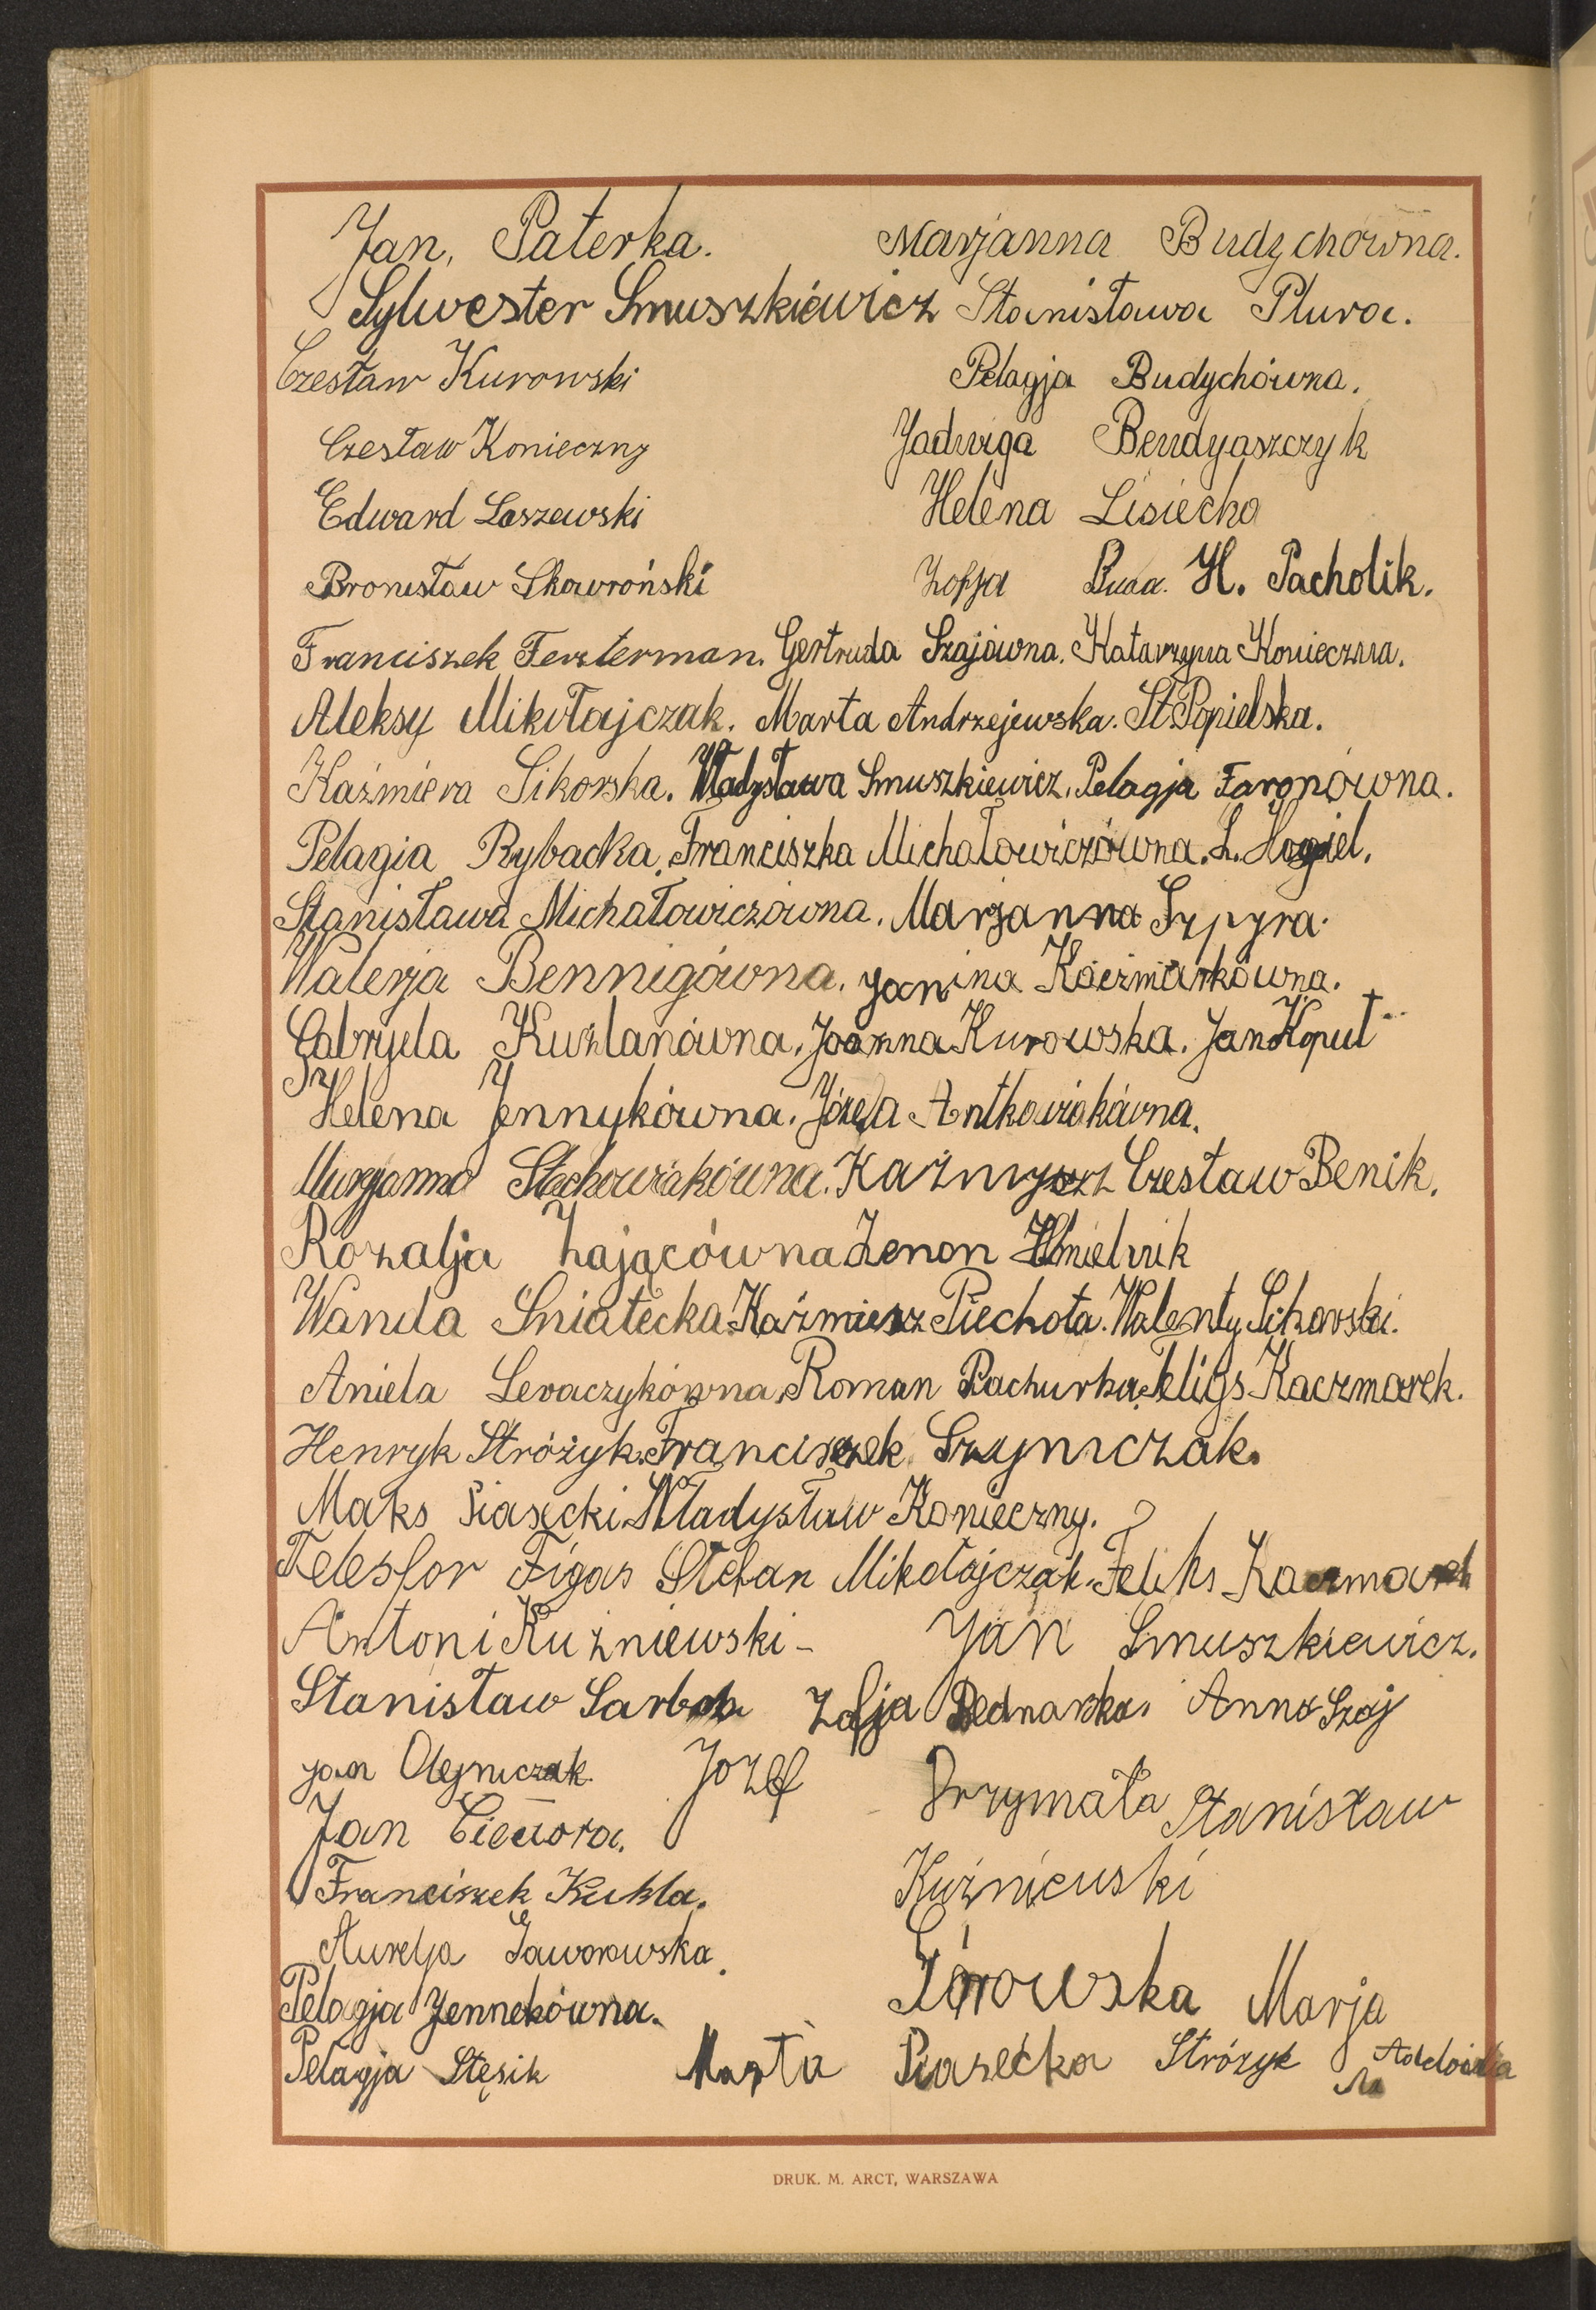 Jan, Paterka. Marjanna Budychówna.
Sylwester Smuszkiewicz Stanisława Plura.
Czesław Kurowski Pelagja Budychówna.
Czesław Konieczny Jadwiga Bendyaszczyk
Edward Laszewski Helena Lisiecka
Bronisław Skowroński Zofja Buda. H. Pacholik.
Franciszek Feszterman. Gertruda Szajówna. Katarzyna Konieczna.
Aleksy Mikołajczak. Marta Andrzejewska. St. Popielska.
Kaźmiera Sikorska. Władysława Smuszkiewicz. Pelagja Faronówna.
Pelagia Rybacka. Franciszka Michałowiczówna. L.
Stanisława Michałowiczówna. Marjanna Szpyra.
Walerja Bennigówna. Janina Kaczmarkówna.
Gabryela Kuzlanówna. Joanna Kurowska. Jan Koput
Helena Jennykówna. Józefa Antkowiakówna.
Marjanna Stachowiakówna. Kaźmyerz Czesław Benik.
Rozalja Zającówna Zenon Hmielnik
Wanda Sniatecka. Kaźmierz Piechota. Walenty Sikorski.
Aniela Levaczykówna. Roman Pachurka. Feligs Kaczmarek.
Henryk Stróżyk. Franciszek Szymczak.
Maks Piasecki. Władysław Konieczny.
Telesfor Figas Stefan Mikołajczak. Feliks Kaczmarek
Antoni Kuźniewski - Jan Smuszkiewicz.
Stanisław Sarbak Zofja Bednarska. Anna Szaj
Jan Olejniczak. Jozef Drzymała Stanisław
Jan Cieciora.
Franciszek Kukla. Kuźniewski
Aurelja Jaworowska.
Pelagja Jennekówna. Górowska Marja
Pelagja Stęsik Marta Piasecka Stróżyk
DRUK. M. ARCT, WARSZAWA